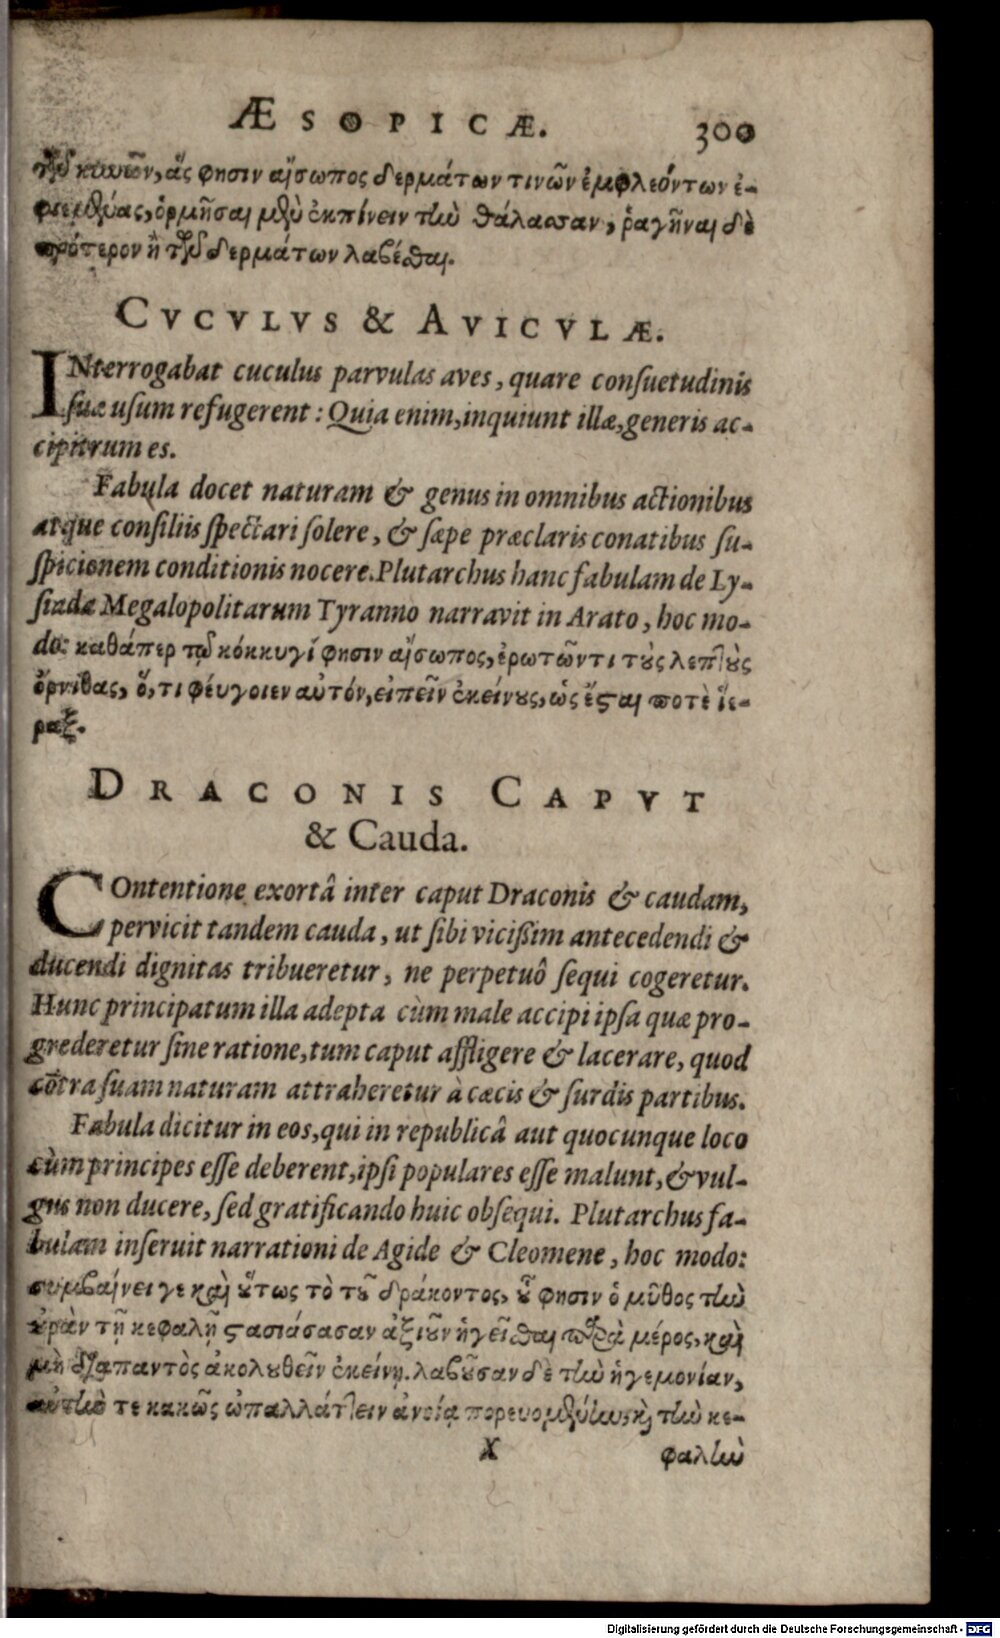 ÆSOPICÆ. 300
τῶν κυνῶν, ἃς φησιν αἴσωπος δερμάτων τινῶν ἐμπλεόντων ἐ-
φιεμένας, ὁρμῆσαι μὲν ἐκπίνειν τὴν θάλασσαν, ῥαγῆναι δὲ
πρότερον ἢ τῶν δερμάτων λαβέσθαι.
CVCVLVS & AVICVLÆ.
INterrogabat cuculus parvulas aves, quare consuetudinis
suæ usum refugerent: Quia enim, inquiunt illæ, generis ac-
cipitrum es.
Fabula docet naturam & genus in omnibus actionibus
atque consiliis spectari solere, & sæpe præclaris conatibus su-
spicionem conditionis nocere. Plutarchus hanc fabulam de Ly-
siada Megalopolitarum Tyranno narravit in Arato, hoc mo-
do: καθάπερ τῷ κόκκυγί φησιν αἴσωπος, ἐρωτῶντι τοὺς λεπτοὺς
ὄρνιθας, ὅ, τι φεύγοιεν αὐτόν, εἰπεῖν ἐκείνους, ὡς ἔσται ποτὲ ἱε-
ραξ.
DRACONIS CAPVT
& Cauda.
COntentione exortâ inter caput Draconis & caudam,
pervicit tandem cauda, ut sibi vicißim antecedendi &
ducendi dignitas tribueretur, ne perpetuô sequi cogeretur.
Hunc principatum illa adepta cùm male accipi ipsa quæ pro-
grederetur sine ratione, tum caput affligere & lacerare, quod
cōtra suam naturam attraheretur à cæcis & surdis partibus.
Fabula dicitur in eos, qui in republicâ aut quocunque loco
cùm principes esse deberent, ipsi populares esse malunt, & vul-
gus non ducere, sed gratificando huic obsequi. Plutarchus fa-
bulam inseruit narrationi de Agide & Cleomene, hoc modo:
συμβαίνει γε καὶ οὕτως τὸ τοῦ δράκοντος, οὗ φησιν ὁ μῦθος τὴν
οὐρὰν τῇ κεφαλῇ στασιάσασαν ἀξιοῦν ἡγεῖσθαι παρὰ μέρος, καὶ
μὴ διαπαντὸς ἀκολουθεῖν ἐκείνῃ. λαβοῦσαν δὲ τὴν ἡγεμονίαν,
αὐτήν τε κακῶς ἀπαλλάττειν ἀνοίᾳ πορευομένην, καὶ τὴν κε-
X φαλὴν
Digitalisierung gefördert durch die Deutsche Forschungsgemeinschaft - DFG